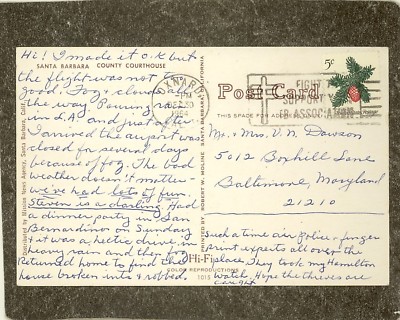 SANTA BARBARA COUNTY COURTHOUSE
Hi! I made it O.K but
the flight was not too
good. Fog & clouds all
the way. Pouring rain
in L.A and just after
I arrived the airport was
closed for several days
because of fog. The bad
weather doesn't matter-
we've had lots of fun.
Steven is a darling. Had
a dinner party in San
Bernardino on Sunday
& it was a hectic drive in
heavy rain and then fog
Returned home to find the
house broken into & robbed.
Such a time air police & finger
print experts all over the
place. They took my Hamilton
watch. Hope the thieves are
caught
Distributed by Mission News Agency, Santa Barbara, Calif.
PRINTED BY ROBERT W. MOLINE SANTA BARBARA CALIFORNIA
Post Card
THIS SPACE FOR ADDRESS
OXNARD
DEC 30
1964
5¢
FIGHT
SUPPORT
ASSOCIATION
Mr. & Mrs. V. N. Dawson
5012 Boxhill Lane
Baltimore, Maryland
21210
Hi-Fi
COLOR REPRODUCTIONS
1015